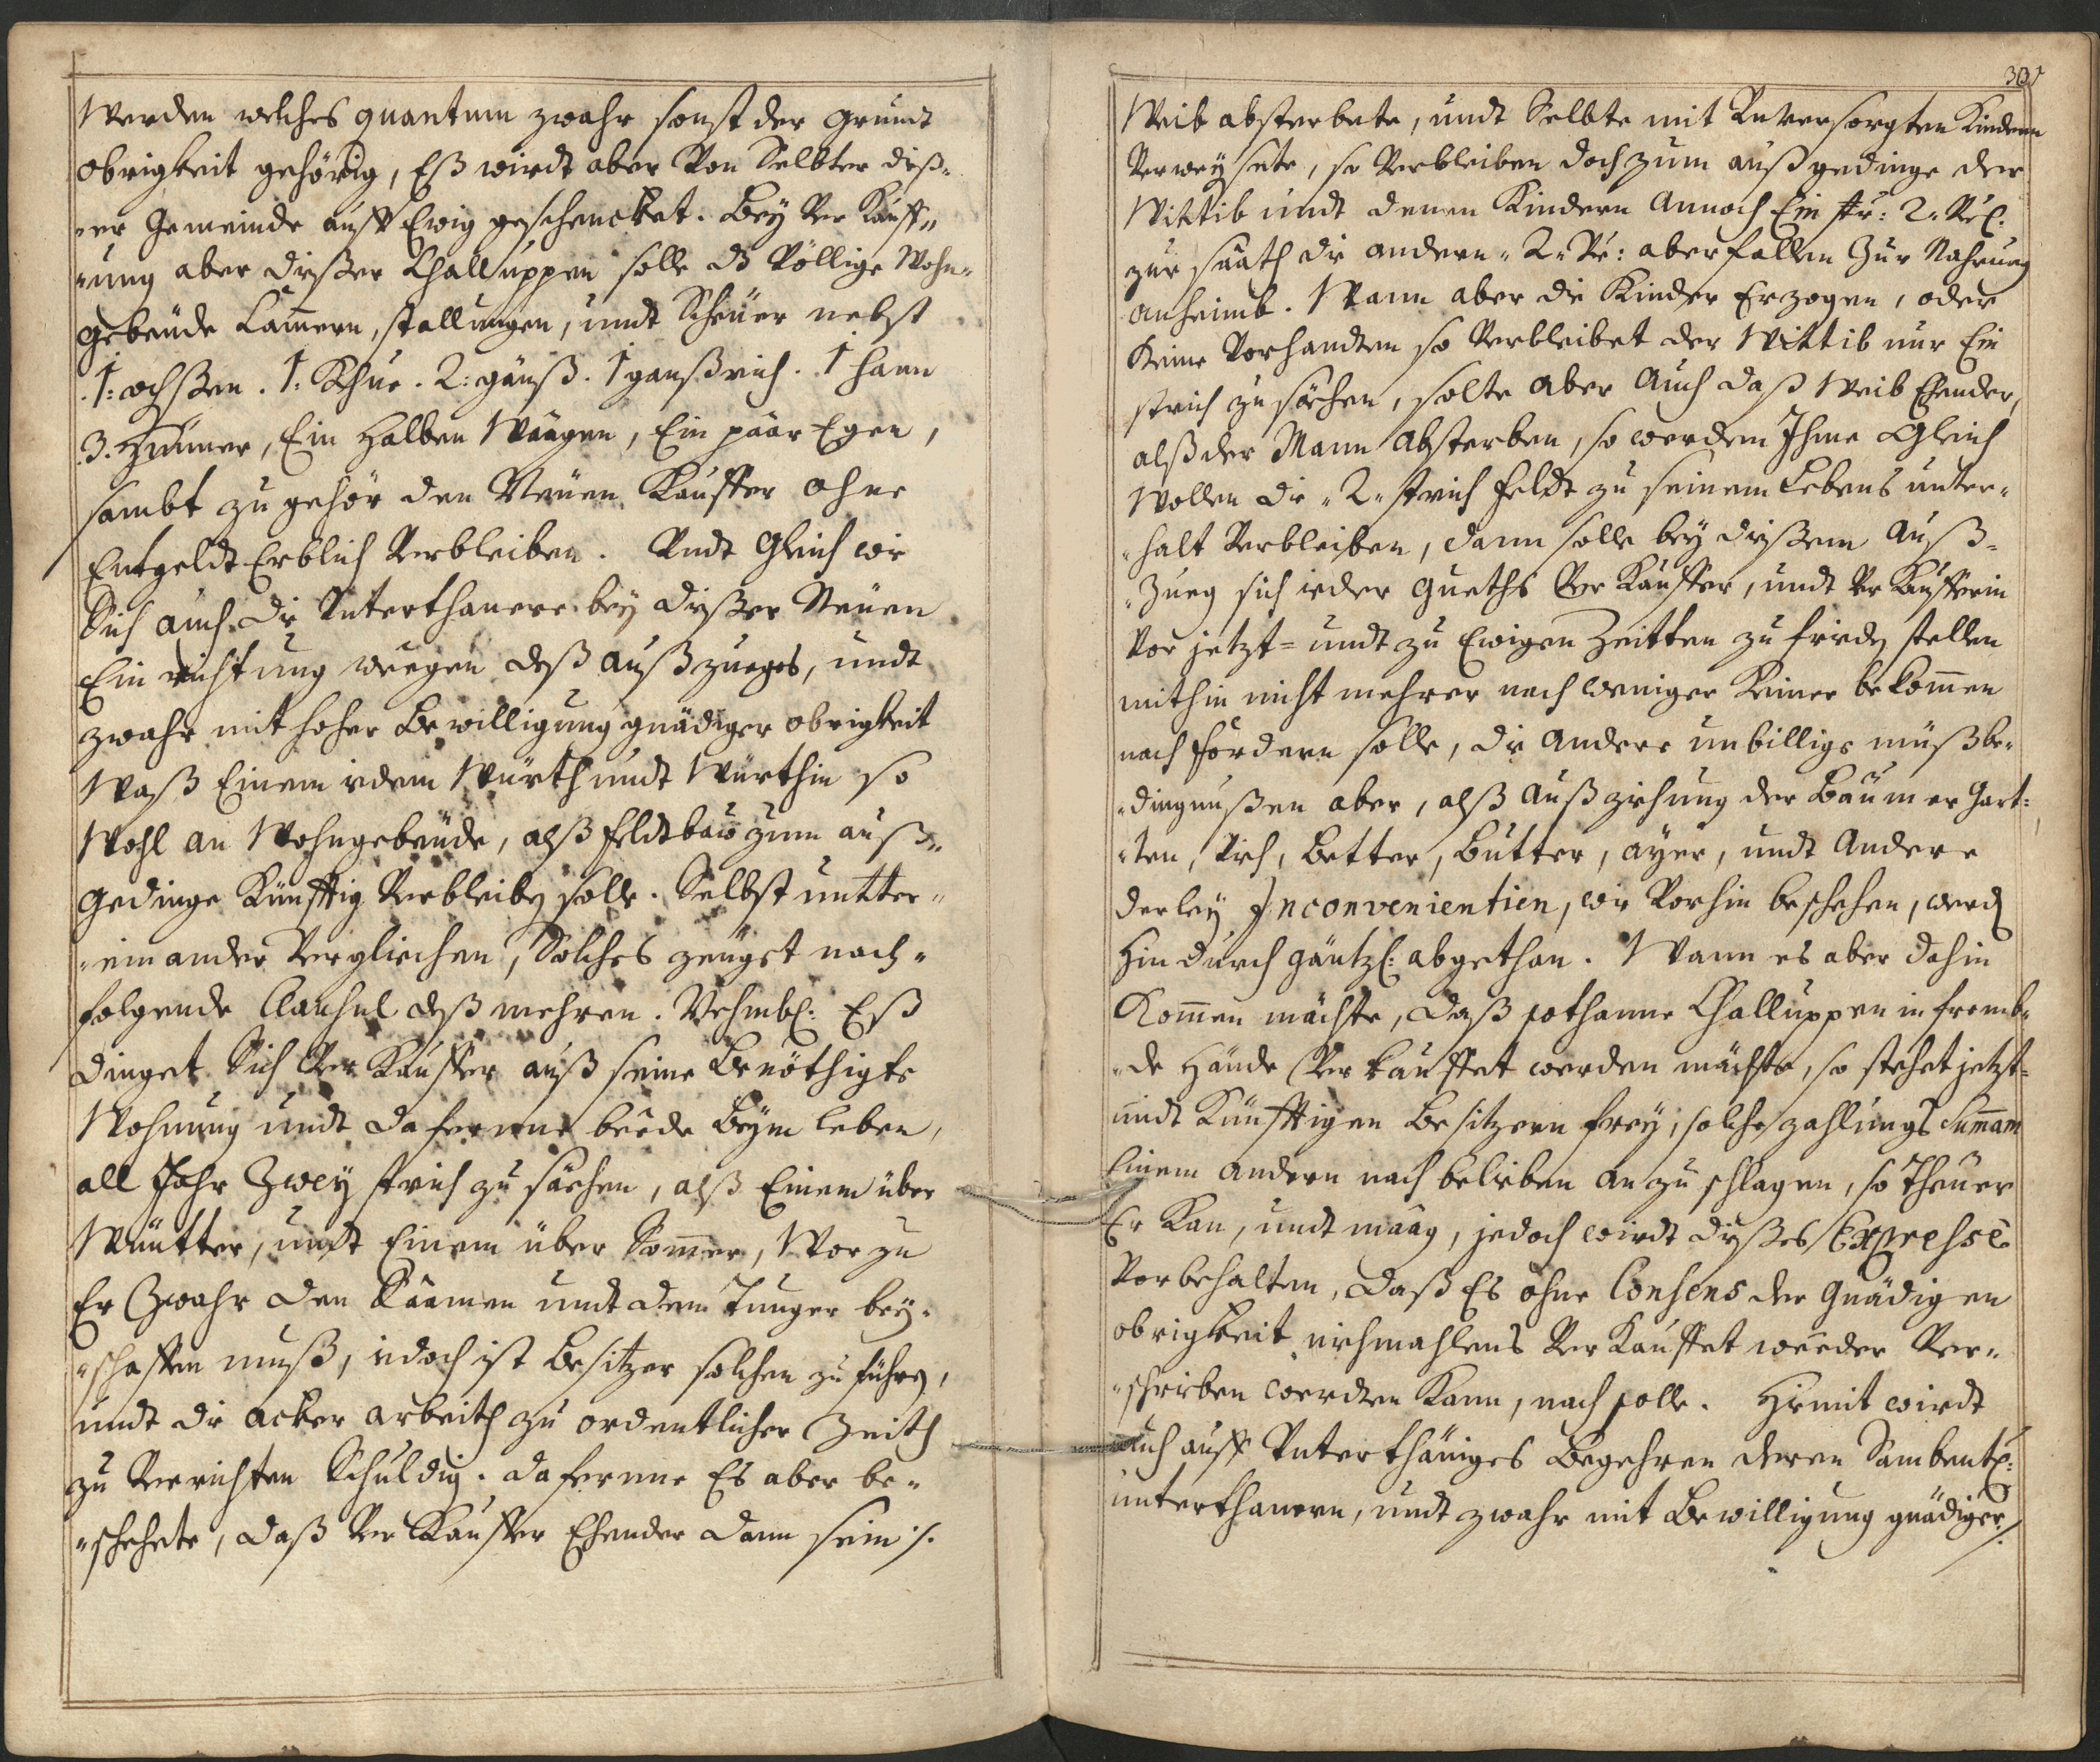 Werden welches quantum zwahr sonst der grundt
obrigkeit gehörig, Eß wirdt aber Von Selbter dieß-
-er Gemeinde auff Ewig geschencket. Bey Ver Kauff„
„ung aber dießer Challuppen solle dß Völlige Wohn-
gebeüde Cam̄ern, stallungen, undt Scheüer nebst
1: ochßen. 1: Khue. 2: gänß. 1 ganßrich. 1 hann
3. Hünner, Ein Halben Waagen, Ein päar Egen,
sambt zu gehör den Neüen Kauffer ohne
Entgeldt Erblich Verbleiben. Undt Gleich wie
Sich auch die Unterthanere bey dießer Neüen
Ein richtung weegen deß außzueges, undt
zwahr mit hoher Bewilligung gnädiger obrigkeit
Waß Einem iedem Würth undt Würthin so
Wohl an Wohngebeüde, alß feldtbau zum auß„
gedinge Künfftig Verbleibē solle. Selbst untter„
„einander Verglichen, Solches zeüget nach„
folgende Clausul deß mehren. Nehmbl: Eß
dinget Sich Ver Kauffer auß seine Benöthigte
Wohnung undt dafernne beede beym leben,
all Jahr Zwey strich zu säehen, alß Einem über
Wüntter, undt Einem über Som̄er, Wor zu
Er Zwahr den Saamen undt dem Tunger bey„
„schaffen muß, iedoch ist Besitzer solchen zu führē,
undt die acker arbeith zu ordentlicher Zeith
zu Verrichten Schuldig. dafernne Es aber be„
„schehete, daß Ver Kauffer Ehender dann sein ./.
303
Weib absterbete, undt Selbte mit Unversorgten Kindern
Verweysete, so Verbleiben doch zum außgedinge der
Wittib undt denen Kindern annoch Ein str: 2. Vrl:
zur säath die andern „2„ Vr: aber fallen Zur Nahrung
anheimb. Wann aber die Kinder Erzogen, oder
Keine Vorhandten so Verbleibet der Wittib nur Ein
strich zu säehen, solte aber Auch daß Weib Ehender,
alß der Mann Absterben, so werden Ihme Gleich
Wollen die „2„ strich feldt zu seinem Lebens unter„
„halt Verbleiben, dann solle bey dießem Auß„
„Zueg sich ieder gueths Ver Kauffer, undt Ver Kaufferin
Vor jetzt= undt zu Ewigen Zeitten zu friedē stellen
mithin nicht mehrer noch weniger Keiner bekom̄en
noch fordern solle, die Andere unbillige müßbe„
„dingnußen aber, alß Außziehung der Baümer Gart:
„ten, Vieh, Better, Butter, ayer, undt Andere
derley Inconvenientien, wie Vorhin beschehen, werdē
Hin durch gäntzl: abgethan. Wann es aber dahin
Kom̄en möchte, daß sothanne Challuppen in fremb„
„de Hände Ver kauffet werden möchte, so stehet jetzt=
undt Künfftigen Besitzern frey, solche zahlungs Sum̄am
Einem andern nach belieben an zu schlagen, so theuer
Er Kan, undt maag, jedoch wirdt dießes Expresse
Vorbehalten, daß Es ohne Consens der Gnädigen
obrigkeit niehmahlens Ver Kauffet weeder Ver„
„schrieben werden Kann, noch solle. Hiemit wirdt
Auch auff Unterthäniges Begehren deren Sambentl:
unterthanern, undt zwahr mit Bewilligung gnädiger ./.